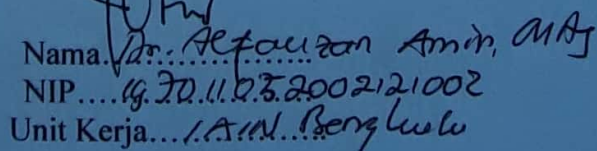 Nama. Dr. Alfauzan Amin, MAg
NIP....19.70.11.05.2002121002
Unit Kerja...IAIN Bengkulu